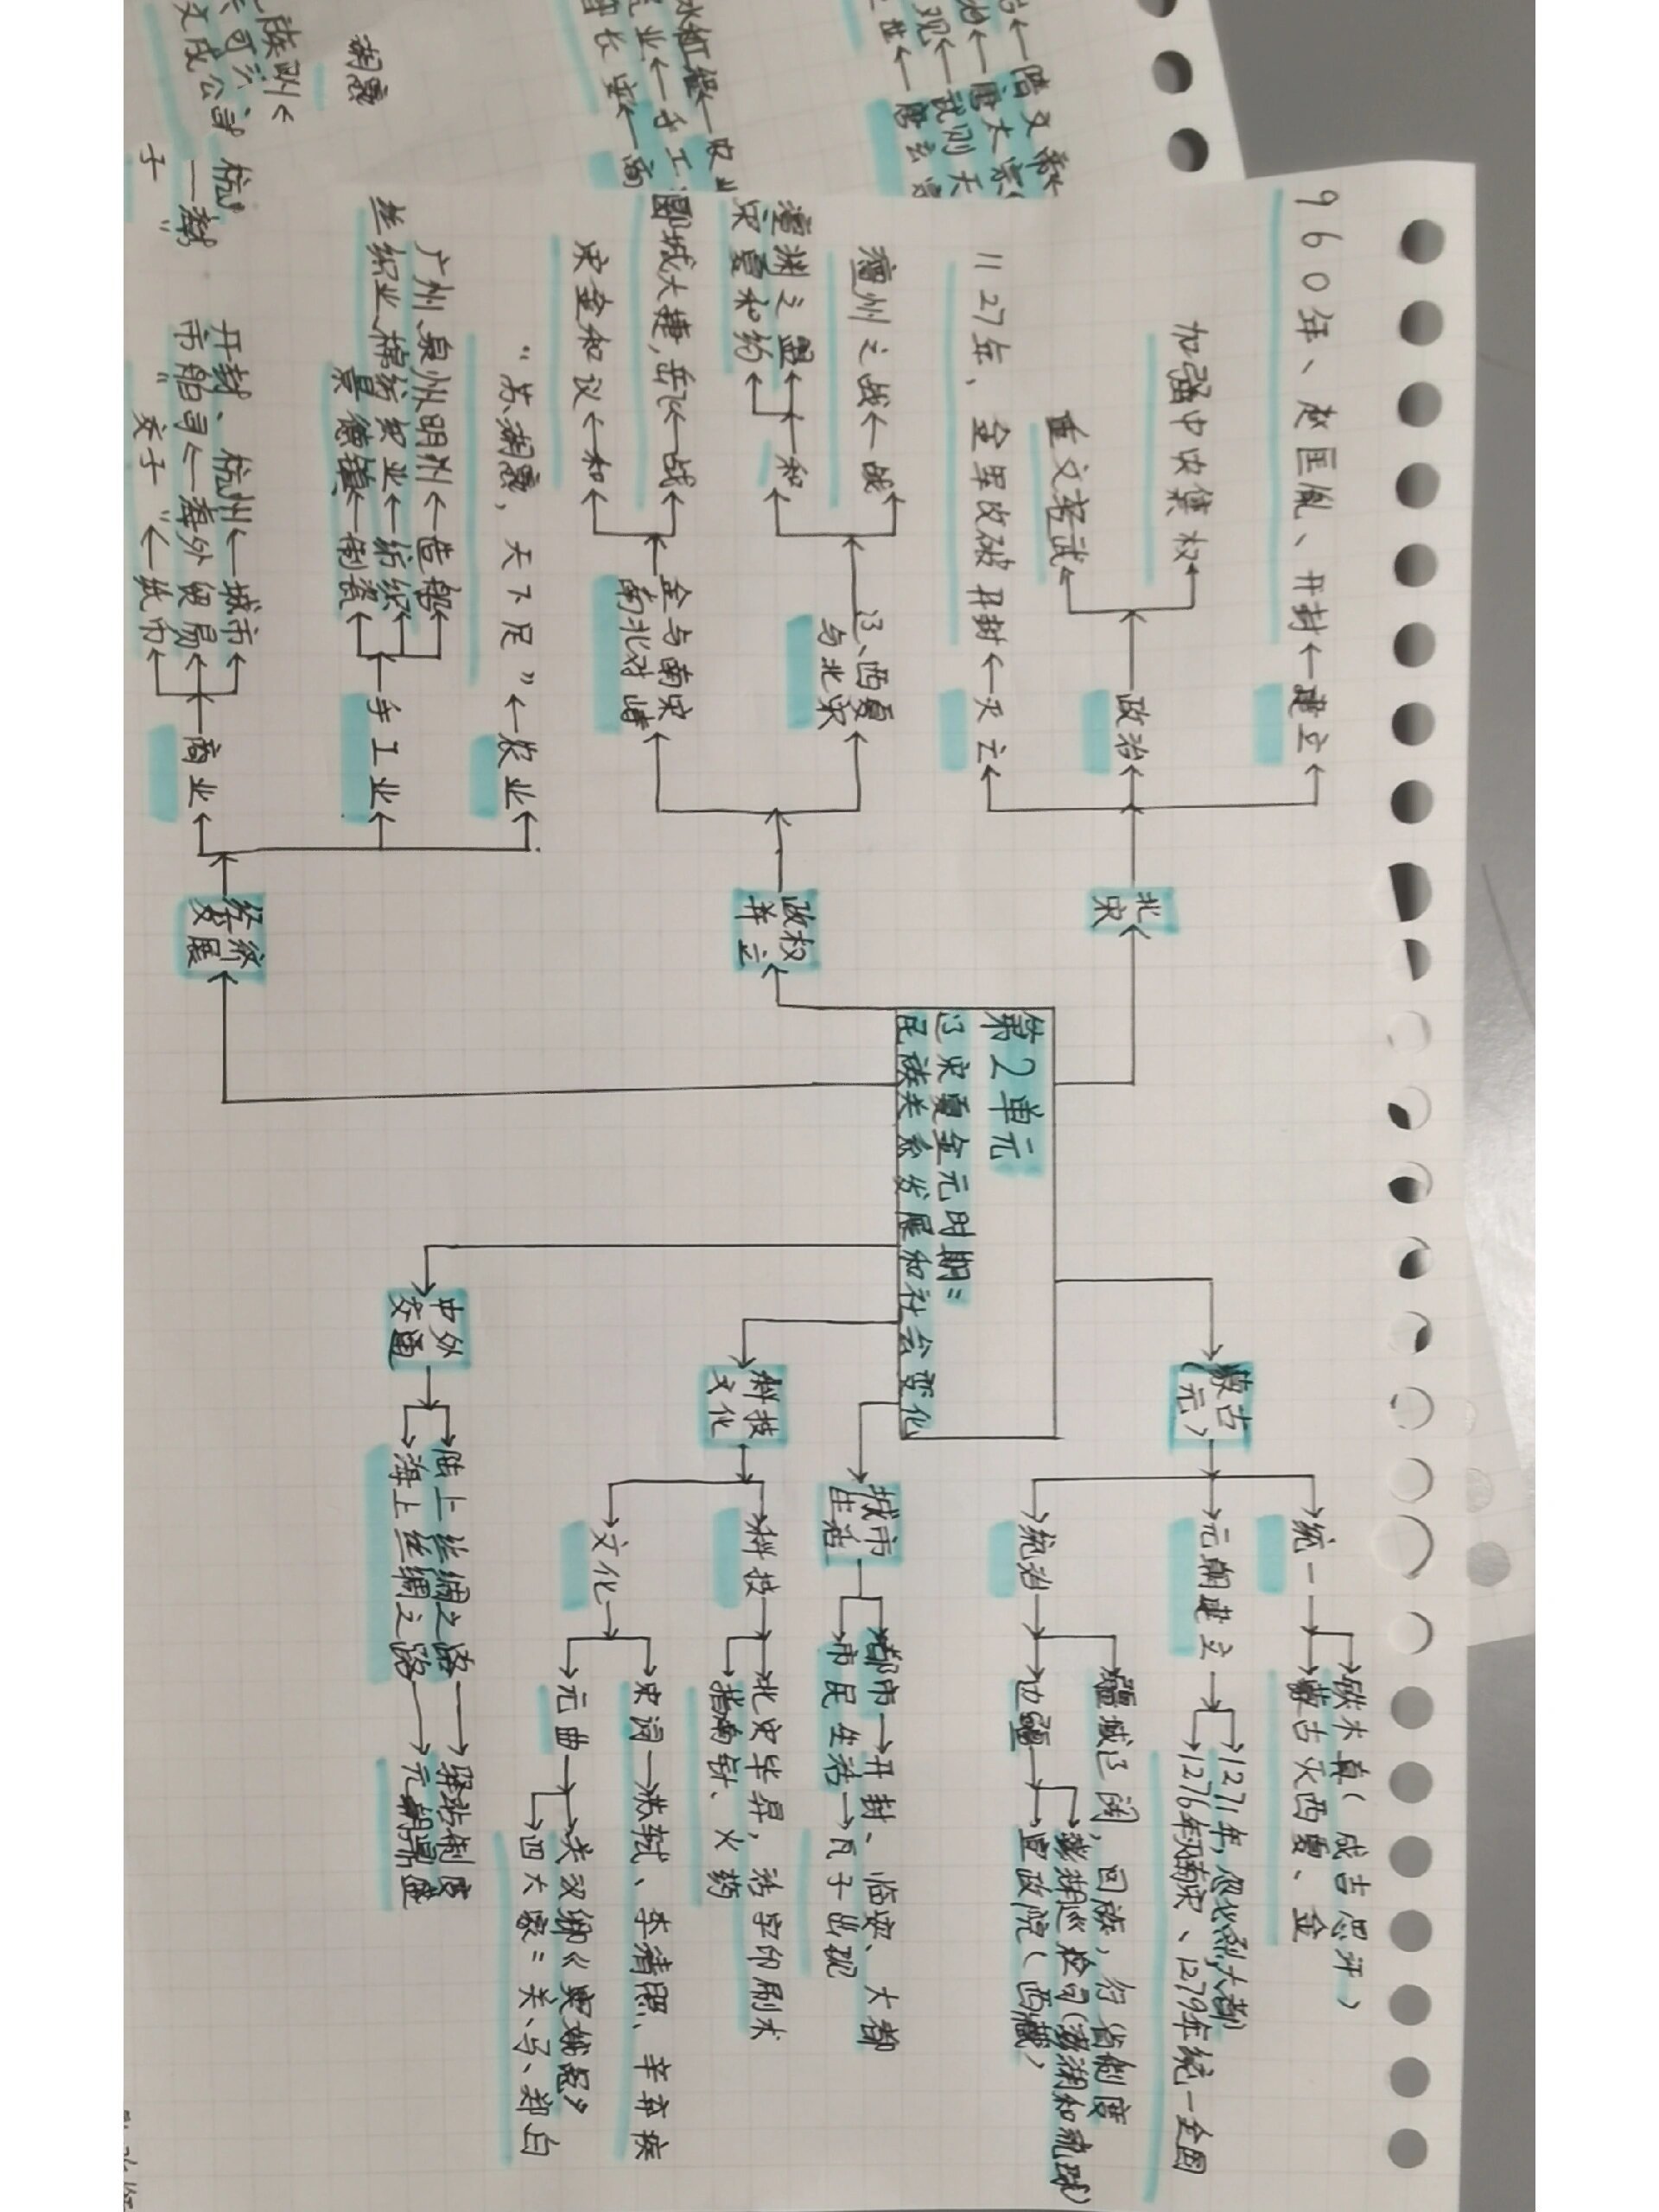 第2单元
辽宋夏金元时期：
民族关系发展和社会变化
北
宋
建立
960年、赵匡胤、开封
政治
加强中央集权
重文轻武
灭亡
1127年，金军攻破开封
政权
并立
辽、西夏
与北宋
战
澶州之战
和
澶渊之盟
宋夏和约
金与南宋
南北对峙
战
郾城大捷，岳飞
和
宋金和议
经济
发展
农业
“苏湖熟，天下足”
手工业
造船
广州泉州明州
纺织
丝织业棉纺织业
制瓷
景德镇
商业
城市
开封、杭州
海外贸易
市舶司
纸币
“交子”
蒙古
（元）
统一
铁木真（成吉思汗）
蒙古灭西夏、金
元朝建立
1271年，忽必烈(大都)
1276年灭南宋、1279年统一全国
统治
疆域辽阔，回族，行省制度
边疆
澎湖巡检司（澎湖和琉球）
宣政院（西藏）
城市
生活
都市
开封、临安、大都
市民生活
瓦子出现
科技
文化
科技
北宋毕昇，活字印刷术
指南针、火药
文化
宋词
苏轼、李清照、辛弃疾
元曲
关汉卿《窦娥冤》
四大家：关、马、郑、白
中外
交通
陆上丝绸之路
驿站制度
海上丝绸之路
元朝鼎盛
隋文帝
唐太宗
武则天
唐玄宗
农业
手工
商
长安
文成公